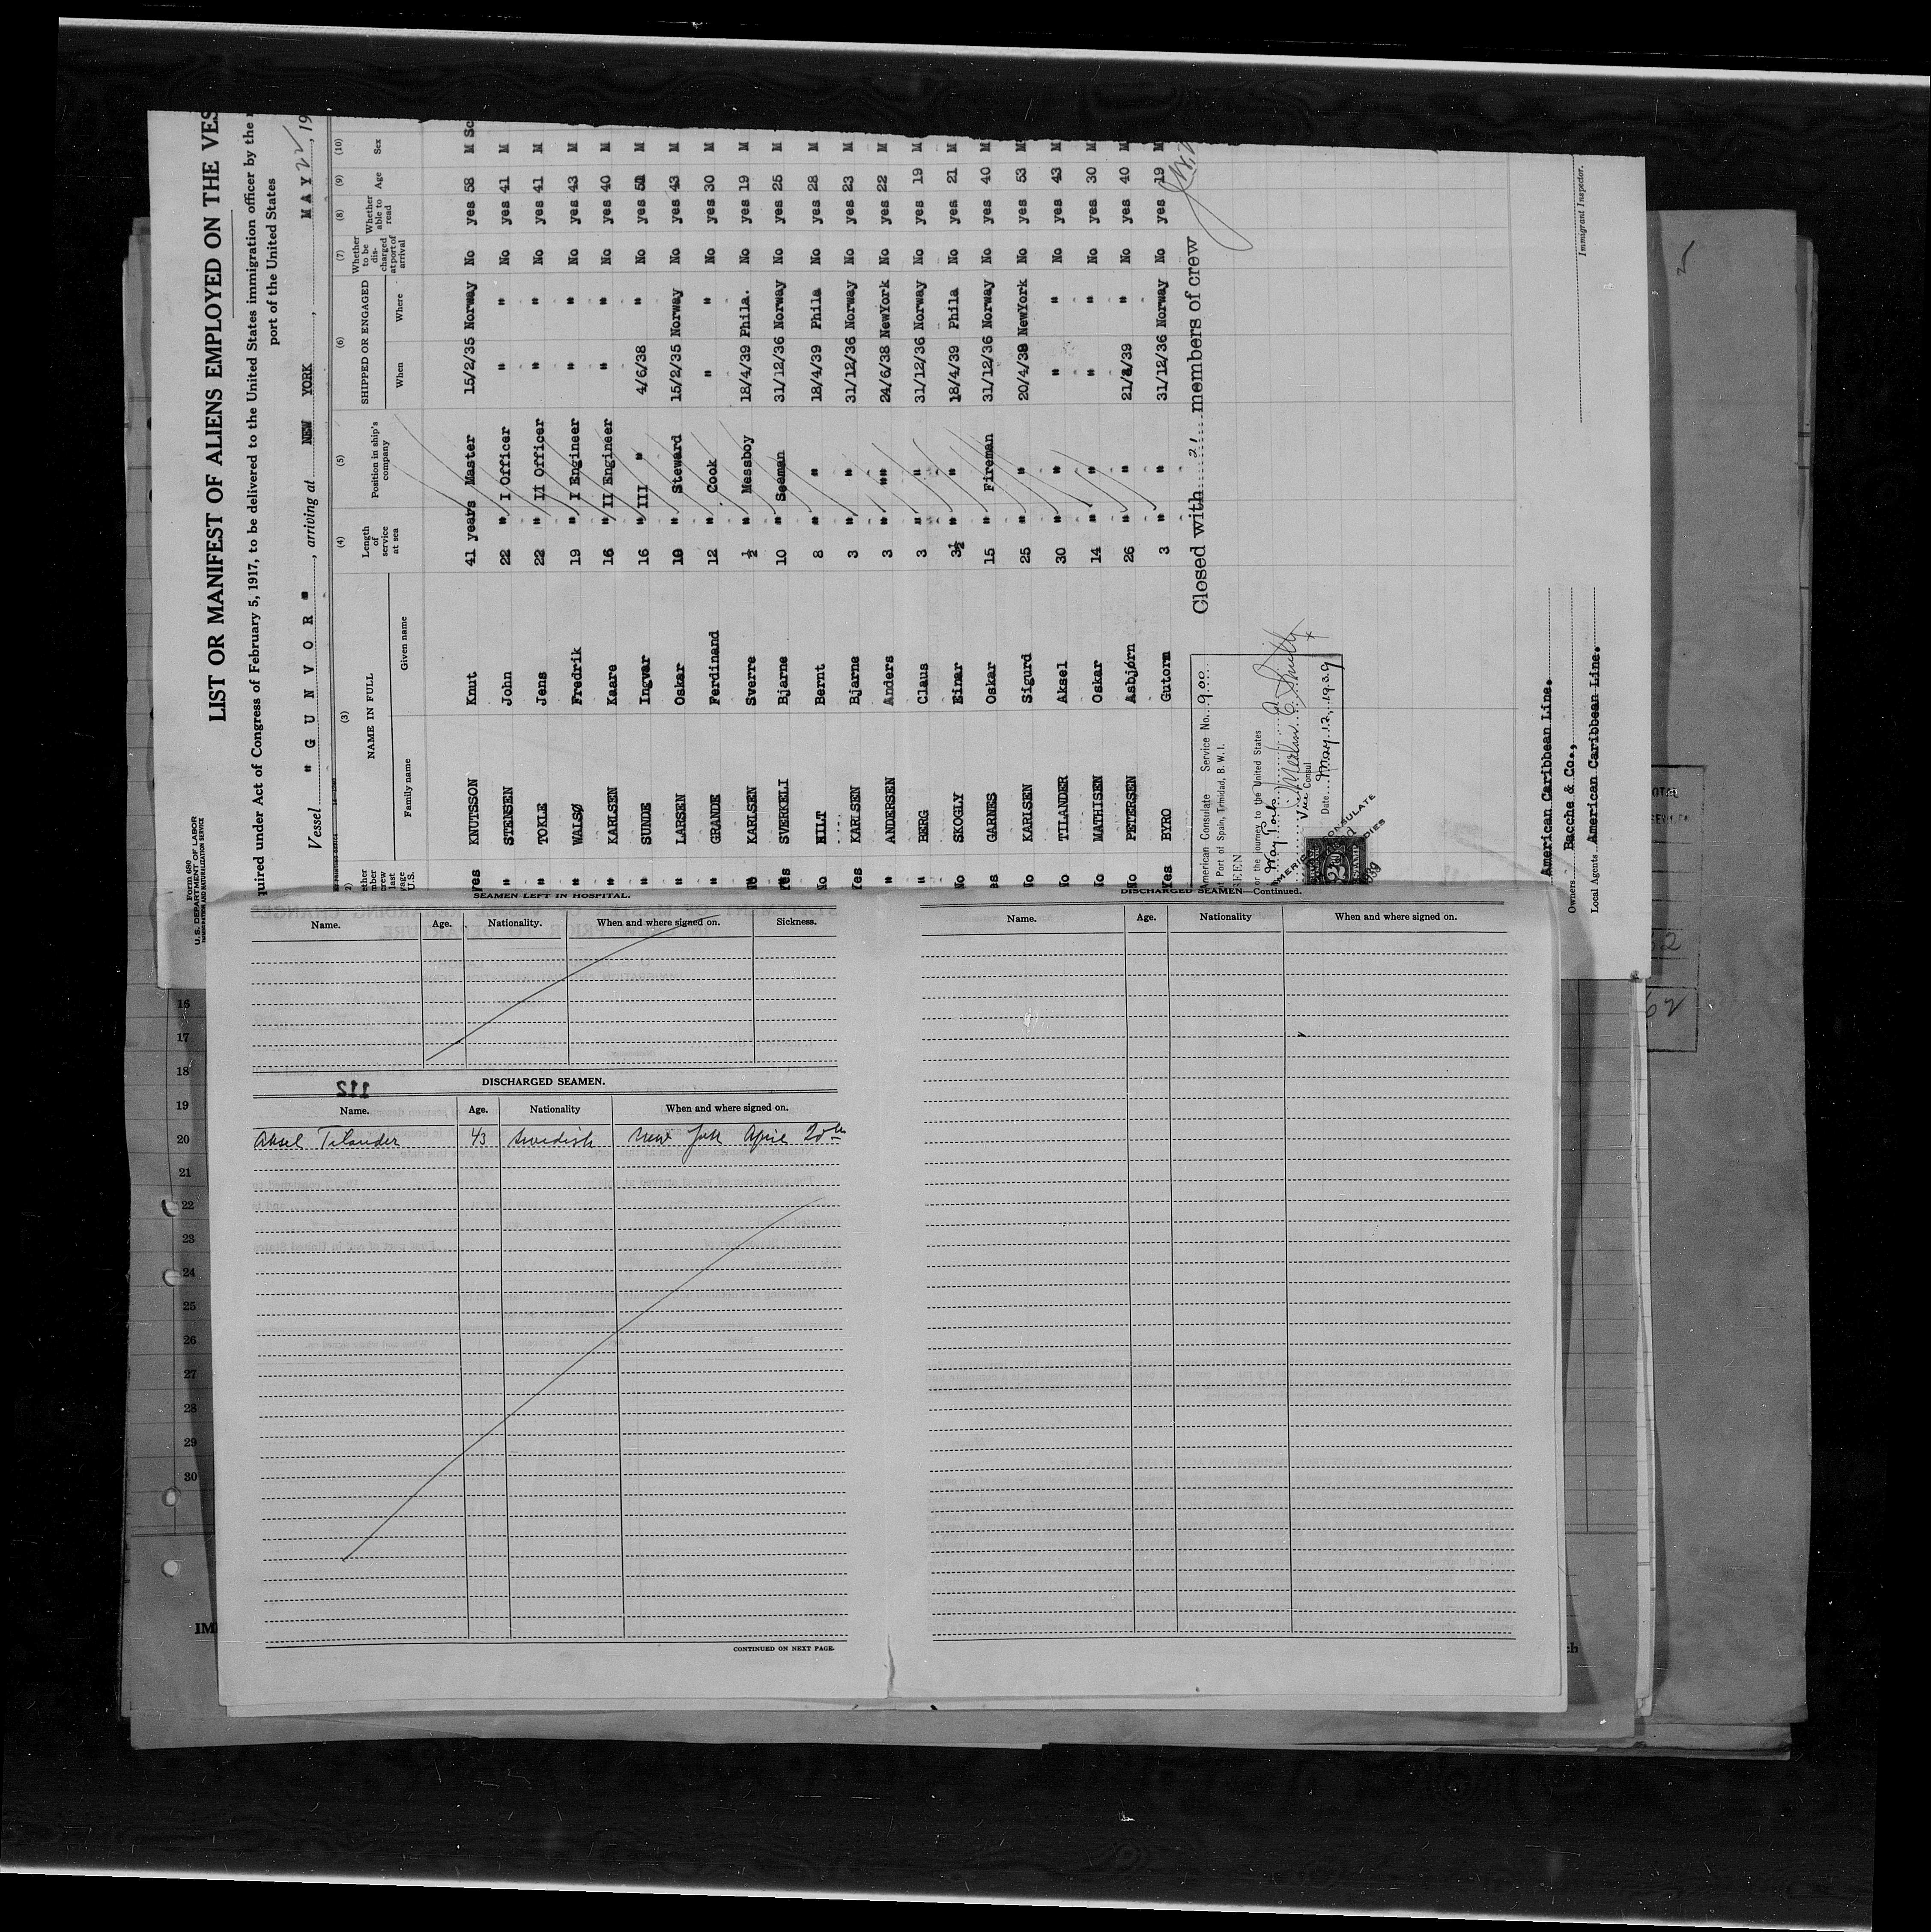 Form 680
U. S. DEPARTMENT OF LABOR
IMMIGRATION AND NATURALIZATION SERVICE
LIST OR MANIFEST OF ALIENS EMPLOYED ON THE VES
quired under Act of Congress of February 5, 1917, to be delivered to the United States immigration officer by the
port of the United States
Vessel " G U N V O R ", arriving at NEW YORK, MAY 22, 19
(3) (4) (5) (6) (7) (8) (9) (10)
NAME IN FULL Length of service at sea Position in ship's company SHIPPED OR ENGAGED Whether to be discharged at port of arrival Whether able to read Age Sex
Family name Given name When Where
Yes KNUTSSON Knut 41 years Master 15/2/35 Norway No yes 58 M Sc
" STENSEN John 22 " I Officer " " No yes 41 M
" TOKLE Jens 22 " II Officer " " No yes 41 M
" WALSØ Fredrik 19 " I Engineer " " No yes 43 M
" KARLSEN Kaare 16 " II Engineer " " No yes 40 M
" SUNDE Ingvar 16 " III " 4/6/38 " No yes 51 M
" LARSEN Oskar 10 " Steward 15/2/35 Norway No yes 43 M
" GRANDE Ferdinand 12 " Cook " " No yes 30 M
No KARLSEN Sverre ½ " Messboy 18/4/39 Phila. No yes 19 M
Yes SVERKELI Bjarne 10 " Seeman 31/12/36 Norway No yes 25 M
No HILT Bernt 8 " " 18/4/39 Phila No yes 28 M
Yes KARLSEN Bjarne 3 " " 31/12/36 Norway No yes 23 M
" ANDERSEN Anders 3 " " 24/6/38 NewYork No yes 22 M
" BERG Claus 3 " " 31/12/36 Norway No yes 19 M
No SKOGLY Einar 3½ " " 18/4/39 Phila No yes 21 M
es GARNES Oskar 15 " Fireman 31/12/36 Norway No yes 40 M
No KARLSEN Sigurd 25 " " 20/4/39 NewYork No yes 53 M
No TILANDER Aksel 30 " " " " No yes 43 M
No MATHISEN Oskar 14 " " " " No yes 30 M
No PETERSEN Asbjørn 26 " " 21/8/39 " No yes 40 M
Yes BYRO Gutorm 3 " " 31/12/36 Norway No yes 19 M
Closed with 21 members of crew
American Consulate Service No. 900
t Port of Spain, Trinidad, B. W. I.
SEEN
or the journey to the United States
Vice Consul
Date May 12, 1939
American Caribbean Line.
Owners Bacche & Co.,
Local Agents American Caribbean Line.
Immigrant Inspector.
SEAMEN LEFT IN HOSPITAL.
Name. Age. Nationality. When and where signed on. Sickness.
112
DISCHARGED SEAMEN.
Name. Age. Nationality When and where signed on.
Aksel Tilander 43 Swedish New York April 20th
CONTINUED ON NEXT PAGE.
DISCHARGED SEAMEN—Continued.
Name. Age. Nationality When and where signed on.
16
17
18
19
20
21
22
23
24
25
26
27
28
29
30
IM
62